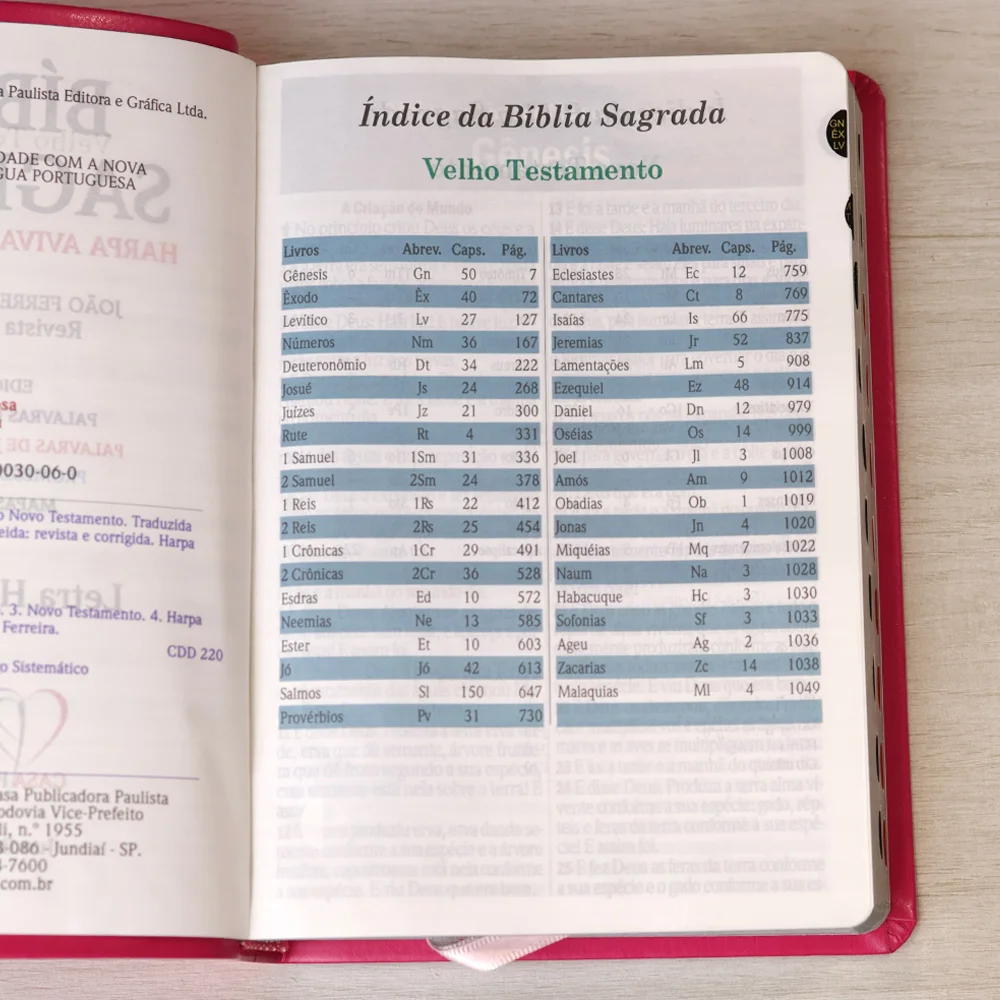 a Paulista Editora e Gráfica Ltda.
DADE COM A NOVA
GUA PORTUGUESA
0030-06-0
o Novo Testamento. Traduzida
eida: revista e corrigida. Harpa
. 3. Novo Testamento. 4. Harpa
Ferreira.
CDD 220
o Sistemático
asa Publicadora Paulista
odovia Vice-Prefeito
li, n.º 1955
3-086 - Jundiaí - SP.
3-7600
.com.br
Índice da Bíblia Sagrada
Velho Testamento
Livros Abrev. Caps. Pág.
Gênesis Gn 50 7
Êxodo Êx 40 72
Levítico Lv 27 127
Números Nm 36 167
Deuteronômio Dt 34 222
Josué Js 24 268
Juízes Jz 21 300
Rute Rt 4 331
1 Samuel 1Sm 31 336
2 Samuel 2Sm 24 378
1 Reis 1Rs 22 412
2 Reis 2Rs 25 454
1 Crônicas 1Cr 29 491
2 Crônicas 2Cr 36 528
Esdras Ed 10 572
Neemias Ne 13 585
Ester Et 10 603
Jó Jó 42 613
Salmos Sl 150 647
Provérbios Pv 31 730
Livros Abrev. Caps. Pág.
Eclesiastes Ec 12 759
Cantares Ct 8 769
Isaías Is 66 775
Jeremias Jr 52 837
Lamentações Lm 5 908
Ezequiel Ez 48 914
Daniel Dn 12 979
Oséias Os 14 999
Joel Jl 3 1008
Amós Am 9 1012
Obadias Ob 1 1019
Jonas Jn 4 1020
Miquéias Mq 7 1022
Naum Na 3 1028
Habacuque Hc 3 1030
Sofonias Sf 3 1033
Ageu Ag 2 1036
Zacarias Zc 14 1038
Malaquias Ml 4 1049
GN
ÊX
LV